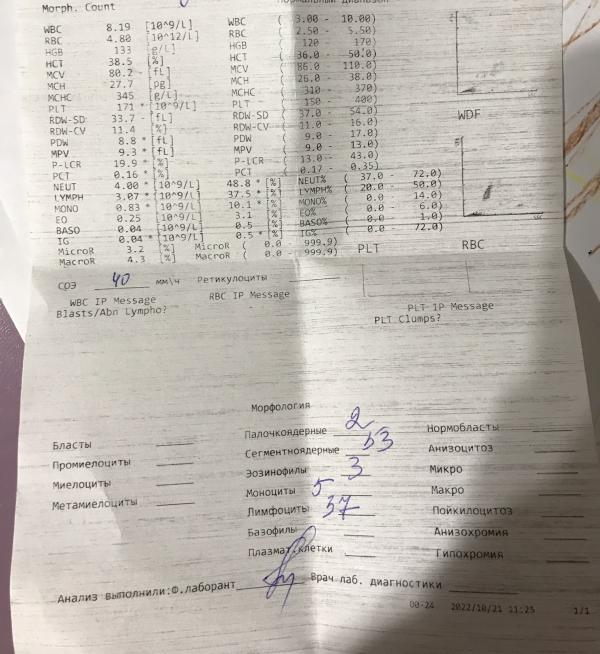 Morph. Count
WBC 8.19 [10^9/L] WBC ( 3.00 - 10.00)
RBC 4.80 [10^12/L] RBC ( 2.50 - 5.50)
HGB 133 [g/L] HGB ( 120 - 170)
HCT 38.5 [%] HCT ( 36.0 - 50.0)
MCV 80.2 - [fL] MCV ( 86.0 - 110.0)
MCH 27.7 [pg] MCH ( 26.0 - 38.0)
MCHC 345 [g/L] MCHC ( 310 - 370)
PLT 171 * [10^9/L] PLT ( 150 - 400)
RDW-SD 33.7 - [fL] RDW-SD ( 37.0 - 54.0)
RDW-CV 11.4 [%] RDW-CV ( 11.0 - 16.0)
PDW 8.8 * [fL] PDW ( 9.0 - 17.0)
MPV 9.3 * [fL] MPV ( 9.0 - 13.0)
P-LCR 19.9 * [%] P-LCR ( 13.0 - 43.0)
PCT 0.16 * [%] PCT ( 0.17 - 0.35)
NEUT 4.00 * [10^9/L] 48.8 * [%] NEUT% ( 37.0 - 72.0)
LYMPH 3.07 * [10^9/L] 37.5 * [%] LYMPH% ( 20.0 - 50.0)
MONO 0.83 * [10^9/L] 10.1 * [%] MONO% ( 0.0 - 14.0)
EO 0.25 [10^9/L] 3.1 [%] EO% ( 0.0 - 6.0)
BASO 0.04 [10^9/L] 0.5 [%] BASO% ( 0.0 - 1.0)
IG 0.04 * [10^9/L] 0.5 * [%] IG% ( 0.0 - 72.0)
MicroR 3.2 [%] MicroR ( 0.0 - 999.9)
MacroR 4.3 [%] MacroR ( 0.0 - 999.9)
WDF
PLT RBC
СОЭ 40 мм\ч Ретикулоциты
WBC IP Message RBC IP Message PLT IP Message
Blasts/Abn Lympho? PLT Clumps?
Морфология
Бласты Палочкоядерные 2 Нормобласты
Промиелоциты Сегментноядерные 53 Анизоцитоз
Миелоциты Эозинофилы 3 Микро
Метамиелоциты Моноциты 5 Макро
Лимфоциты 37 Пойкилоцитоз
Базофилы Анизохромия
Плазмат.клетки Гипохромия
Анализ выполнили:Ф.лаборант Врач лаб. диагностики
00-24 2022/10/21 11:25 1/1